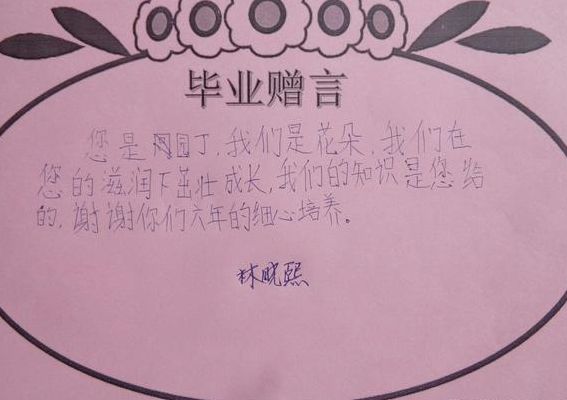 毕业赠言
您是园丁,我们是花朵,我们在
您的滋润下茁壮成长,我们的知识是您给
的,谢谢你们六年的细心培养。
林晓熙